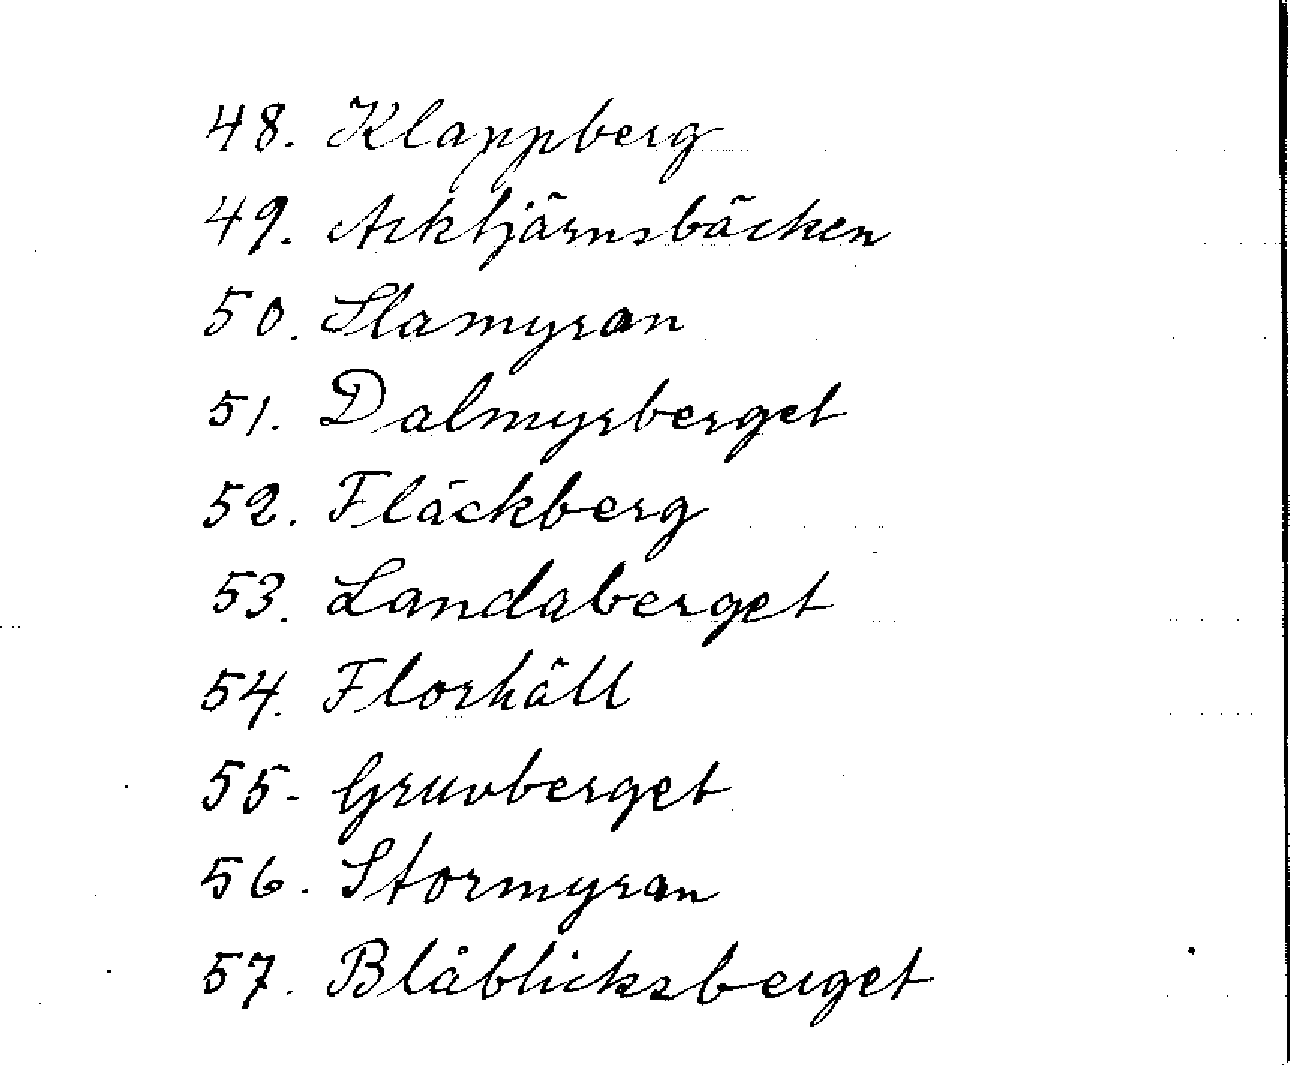 48. Klappberg
49. Acktjärnsbäcken
50. Slamyran
51. Dalmyrberget
52. Fläckberg
53. Landaberget
54. Florhäll
55. Gruvberget
56. Stormyran
57. Blåblicksberget